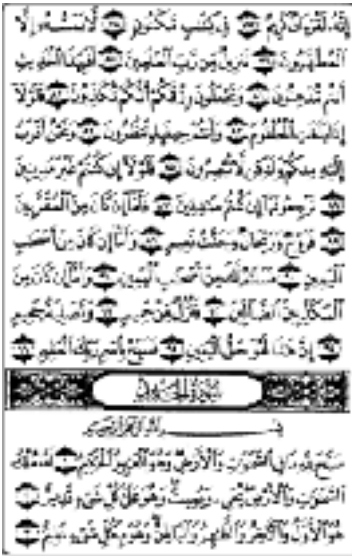 إِنَّهُۥ لَقُرْءَانٌ كَرِيمٌ ۝ فِى كِتَٰبٍ مَّكْنُونٍ ۝ لَّا يَمَسُّهُۥٓ إِلَّا
ٱلْمُطَهَّرُونَ ۝ تَنزِيلٌ مِّن رَّبِّ ٱلْعَٰلَمِينَ ۝ أَفَبِهَٰذَا ٱلْحَدِيثِ
أَنتُم مُّدْهِنُونَ ۝ وَتَجْعَلُونَ رِزْقَكُمْ أَنَّكُمْ تُكَذِّبُونَ ۝ فَلَوْلَآ
إِذَا بَلَغَتِ ٱلْحُلْقُومَ ۝ وَأَنتُمْ حِينَئِذٍ تَنظُرُونَ ۝ وَنَحْنُ أَقْرَبُ
إِلَيْهِ مِنكُمْ وَلَٰكِن لَّا تُبْصِرُونَ ۝ فَلَوْلَآ إِن كُنتُمْ غَيْرَ مَدِينِينَ
۝ تَرْجِعُونَهَآ إِن كُنتُمْ صَٰدِقِينَ ۝ فَأَمَّآ إِن كَانَ مِنَ ٱلْمُقَرَّبِينَ
۝ فَرَوْحٌ وَرَيْحَانٌ وَجَنَّتُ نَعِيمٍ ۝ وَأَمَّآ إِن كَانَ مِنْ أَصْحَٰبِ
ٱلْيَمِينِ ۝ فَسَلَٰمٌ لَّكَ مِنْ أَصْحَٰبِ ٱلْيَمِينِ ۝ وَأَمَّآ إِن كَانَ مِنَ
ٱلْمُكَذِّبِينَ ٱلضَّآلِّينَ ۝ فَنُزُلٌ مِّنْ حَمِيمٍ ۝ وَتَصْلِيَةُ جَحِيمٍ
۝ إِنَّ هَٰذَا لَهُوَ حَقُّ ٱلْيَقِينِ ۝ فَسَبِّحْ بِٱسْمِ رَبِّكَ ٱلْعَظِيمِ ۝
سُورَةُ الْحَدِيدِ
بِسْمِ ٱللَّهِ ٱلرَّحْمَٰنِ ٱلرَّحِيمِ
سَبَّحَ لِلَّهِ مَا فِى ٱلسَّمَٰوَٰتِ وَٱلْأَرْضِ وَهُوَ ٱلْعَزِيزُ ٱلْحَكِيمُ ۝ لَهُۥ مُلْكُ
ٱلسَّمَٰوَٰتِ وَٱلْأَرْضِ يُحْىِۦ وَيُمِيتُ وَهُوَ عَلَىٰ كُلِّ شَىْءٍ قَدِيرٌ ۝
هُوَ ٱلْأَوَّلُ وَٱلْءَاخِرُ وَٱلظَّٰهِرُ وَٱلْبَاطِنُ وَهُوَ بِكُلِّ شَىْءٍ عَلِيمٌ ۝